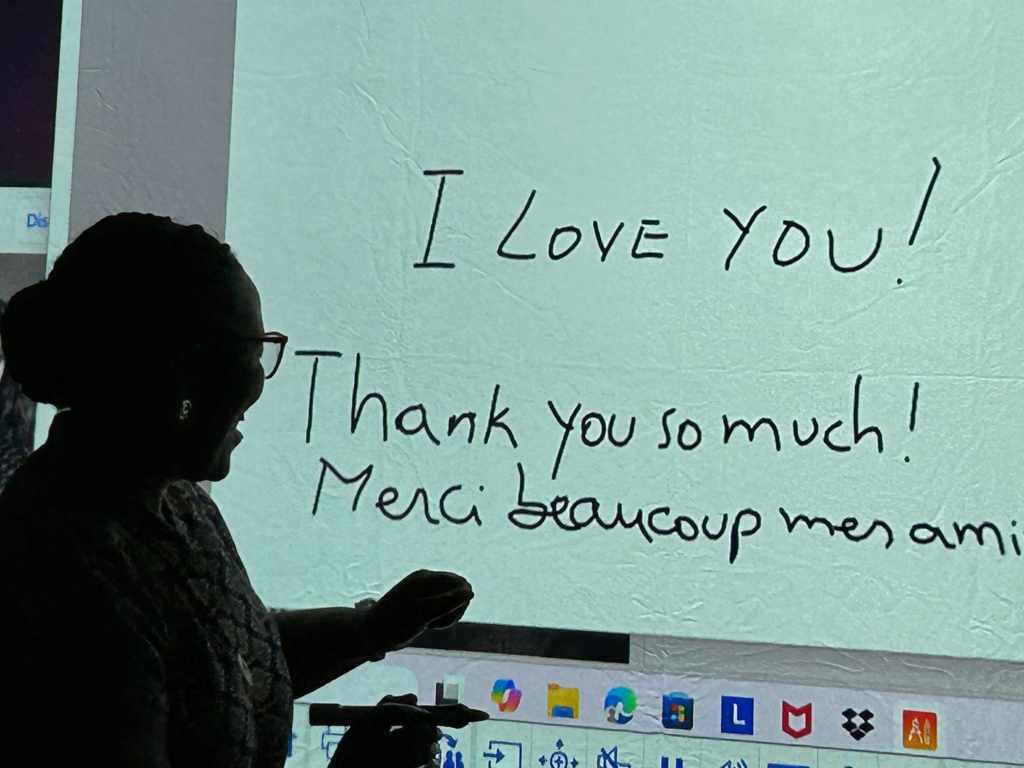 Dis
I LOVE YOU!
Thank you so much!
Merci beaucoup mes ami
L